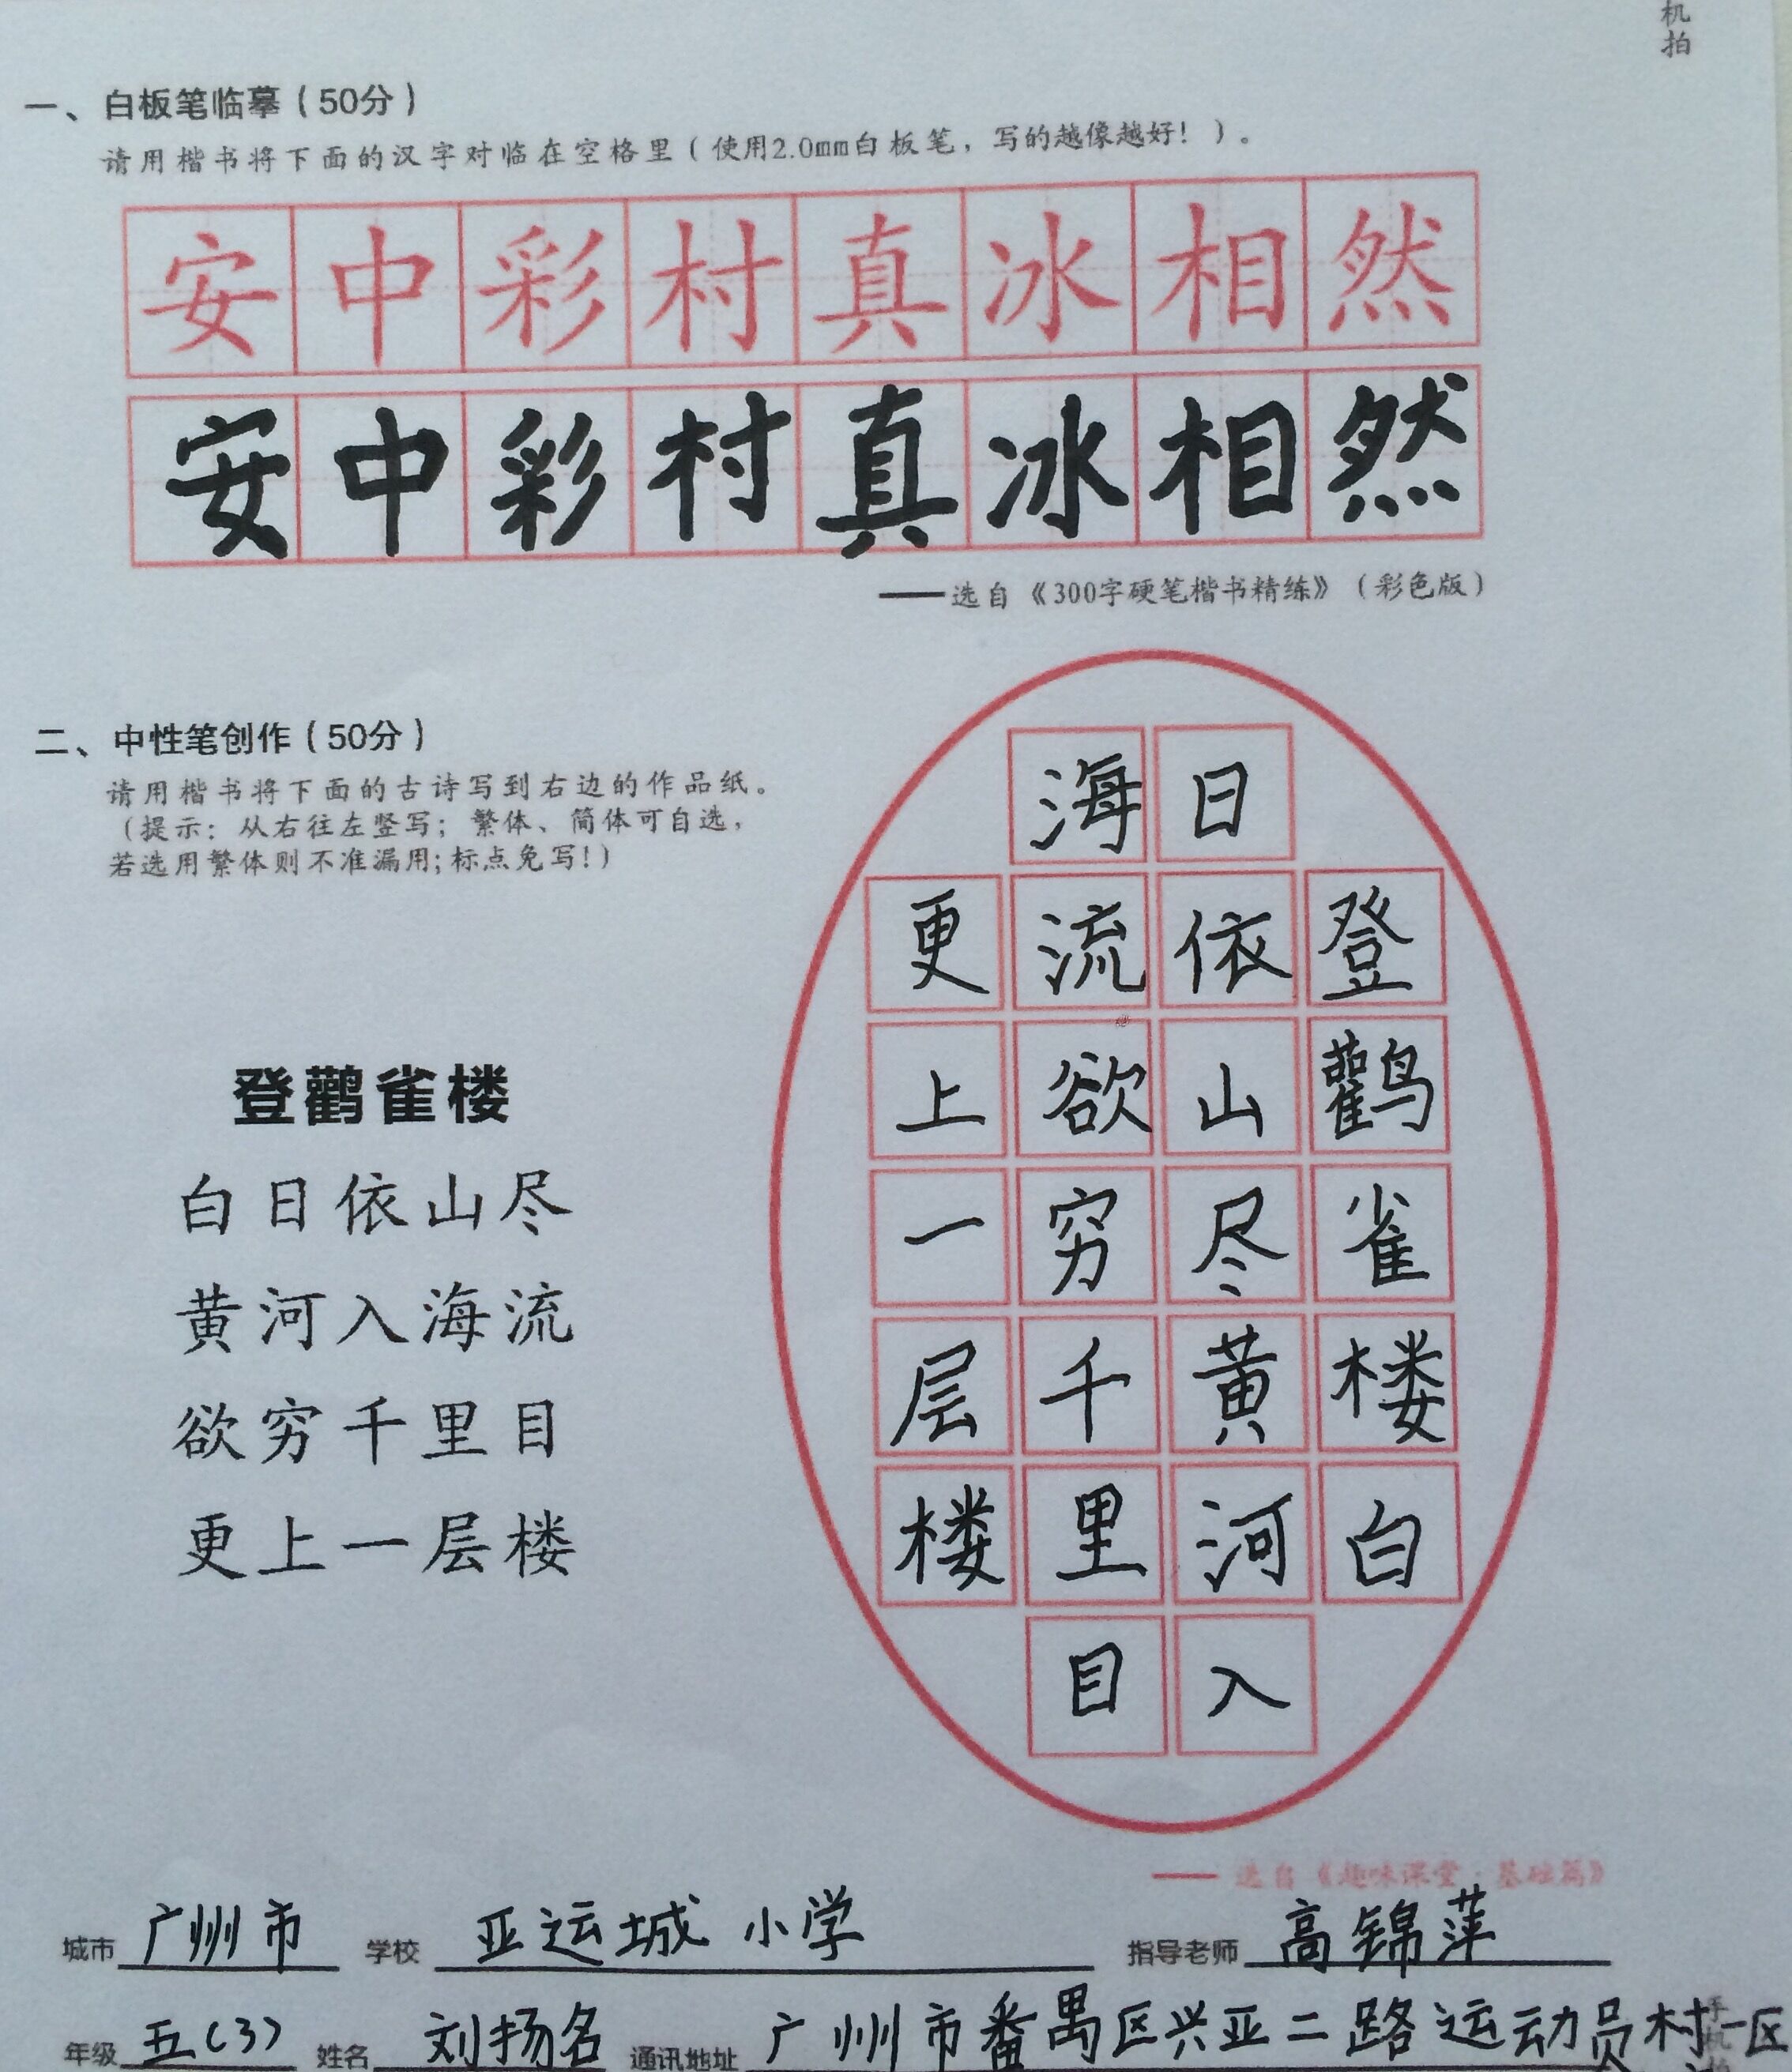 机
拍
一、白板笔临摹（50分）
请用楷书将下面的汉字对临在空格里（使用2.0mm白板笔，写的越像越好！）。
安中彩村真冰相然
安中彩村真冰相然
——选自《300字硬笔楷书精练》（彩色版）
二、中性笔创作（50分）
请用楷书将下面的古诗写到右边的作品纸。
（提示：从右往左竖写；繁体、简体可自选，
若选用繁体则不准漏用；标点免写！）
登鹳雀楼
白日依山尽
黄河入海流
欲穷千里目
更上一层楼
登鹳雀楼白
日依山尽黄河入
海流欲穷千里目
更上一层楼
——选自《趣味课堂·基础篇》
城市 广州市 学校 亚运城小学 指导老师 高锦萍
年级 五(3) 姓名 刘扬名 通讯地址 广州市番禺区兴亚二路运动员村一区